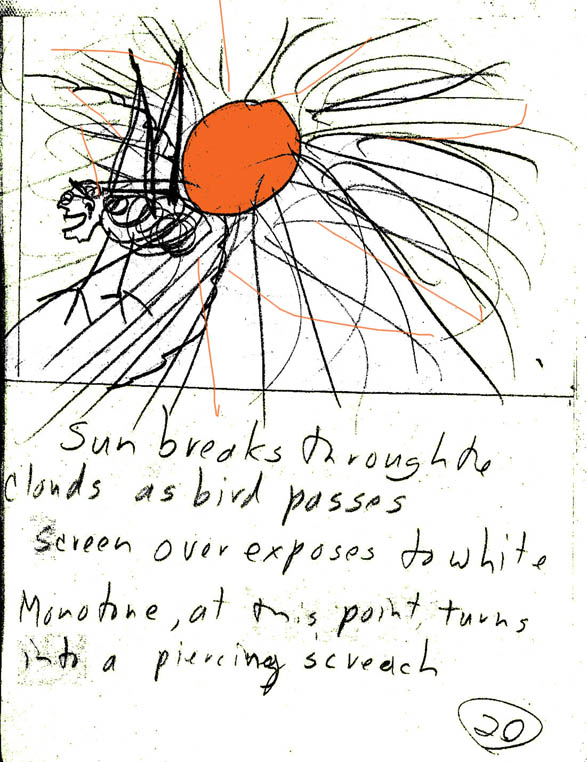 Sun breaks through the
Clouds as bird passes
Screen over exposes to white
Monotone, at this point, turns
into a piercing screach
20